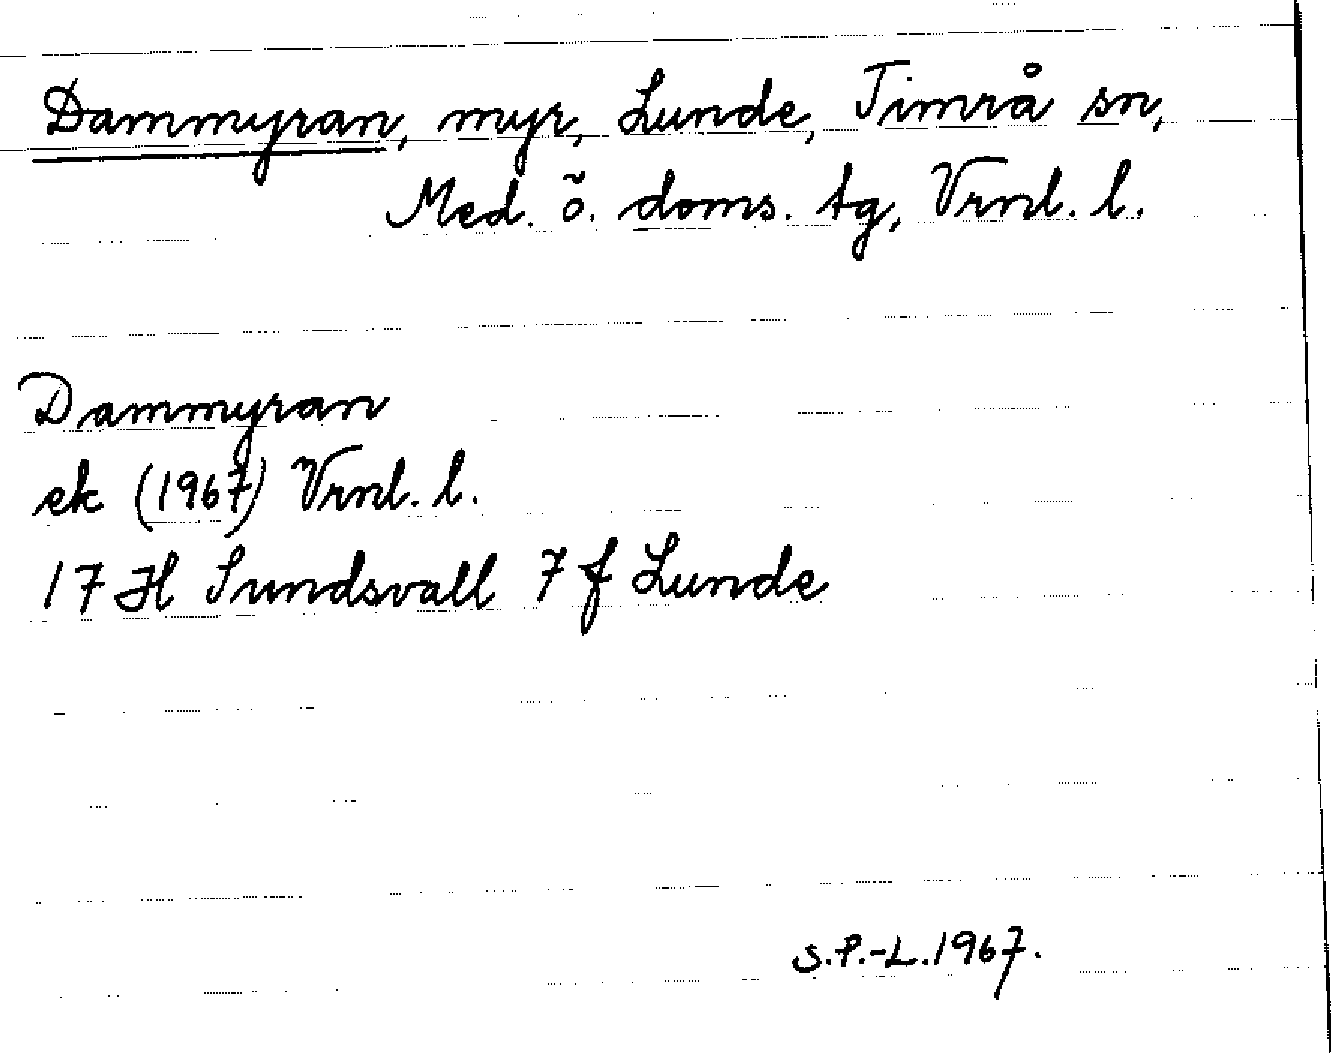 Dammyran, myr, Lunde, Timrå sn,
Med. ö. doms. tg, Vrnl. l.
Dammyran
ek (1967) Vrnl. l.
17 H Sundsvall 7 f Lunde
S.P.-L. 1967.